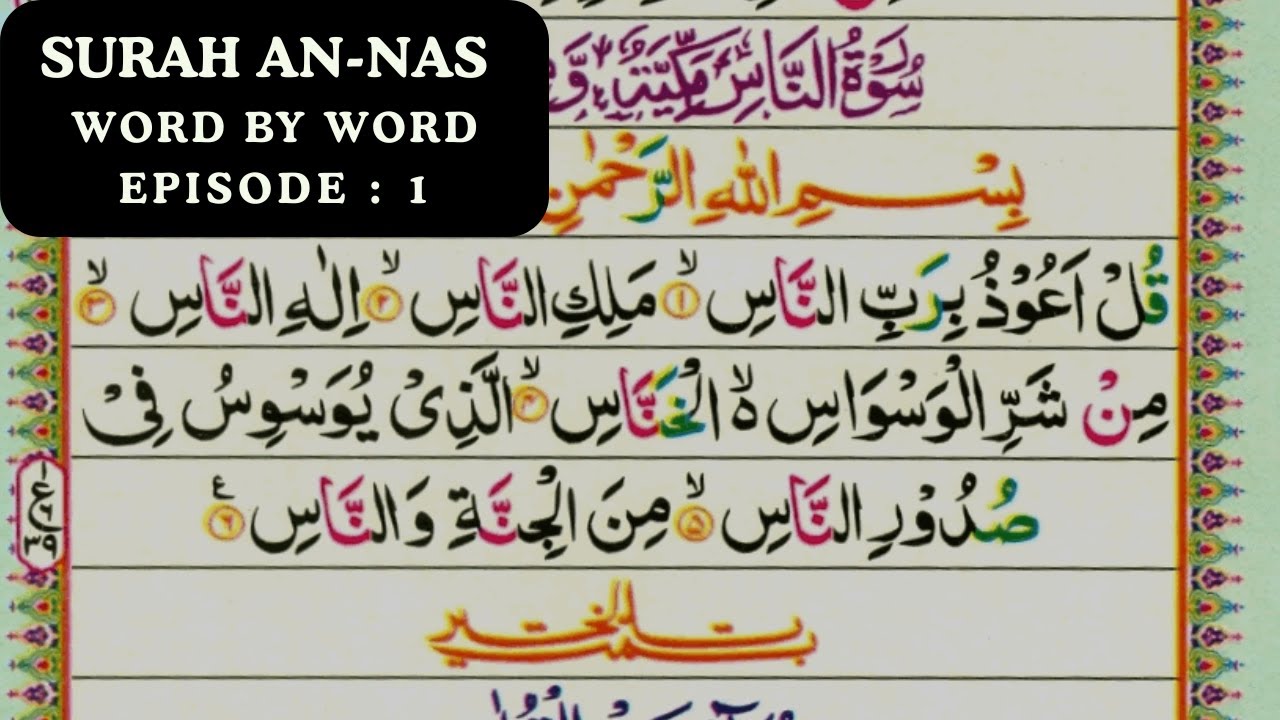 SURAH AN-NAS
WORD BY WORD
EPISODE : 1
سُوْرَةُ النَّاسِ مَكِّيَّةٌ
بِسْمِ اللّٰهِ الرَّحْمٰنِ
قُلْ اَعُوْذُ بِرَبِّ النَّاسِ ۙ﴿۱﴾ مَلِكِ النَّاسِ ۙ﴿۲﴾ اِلٰهِ النَّاسِ ۙ﴿۳﴾
مِنْ شَرِّ الْوَسْوَاسِ ۵ۙ الْخَنَّاسِ ۙ﴿۴﴾ الَّذِیْ یُوَسْوِسُ فِیْ
صُدُوْرِ النَّاسِ ۙ﴿۵﴾ مِنَ الْجِنَّةِ وَ النَّاسِ ﴿۶﴾ ع